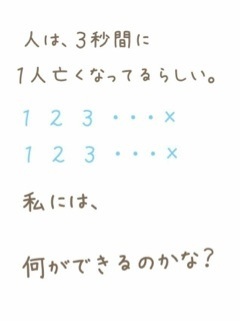 人は、3秒間に
1人亡くなってるらしい。
1 2 3 ・・・×
1 2 3 ・・・×
私には、
何ができるのかな?